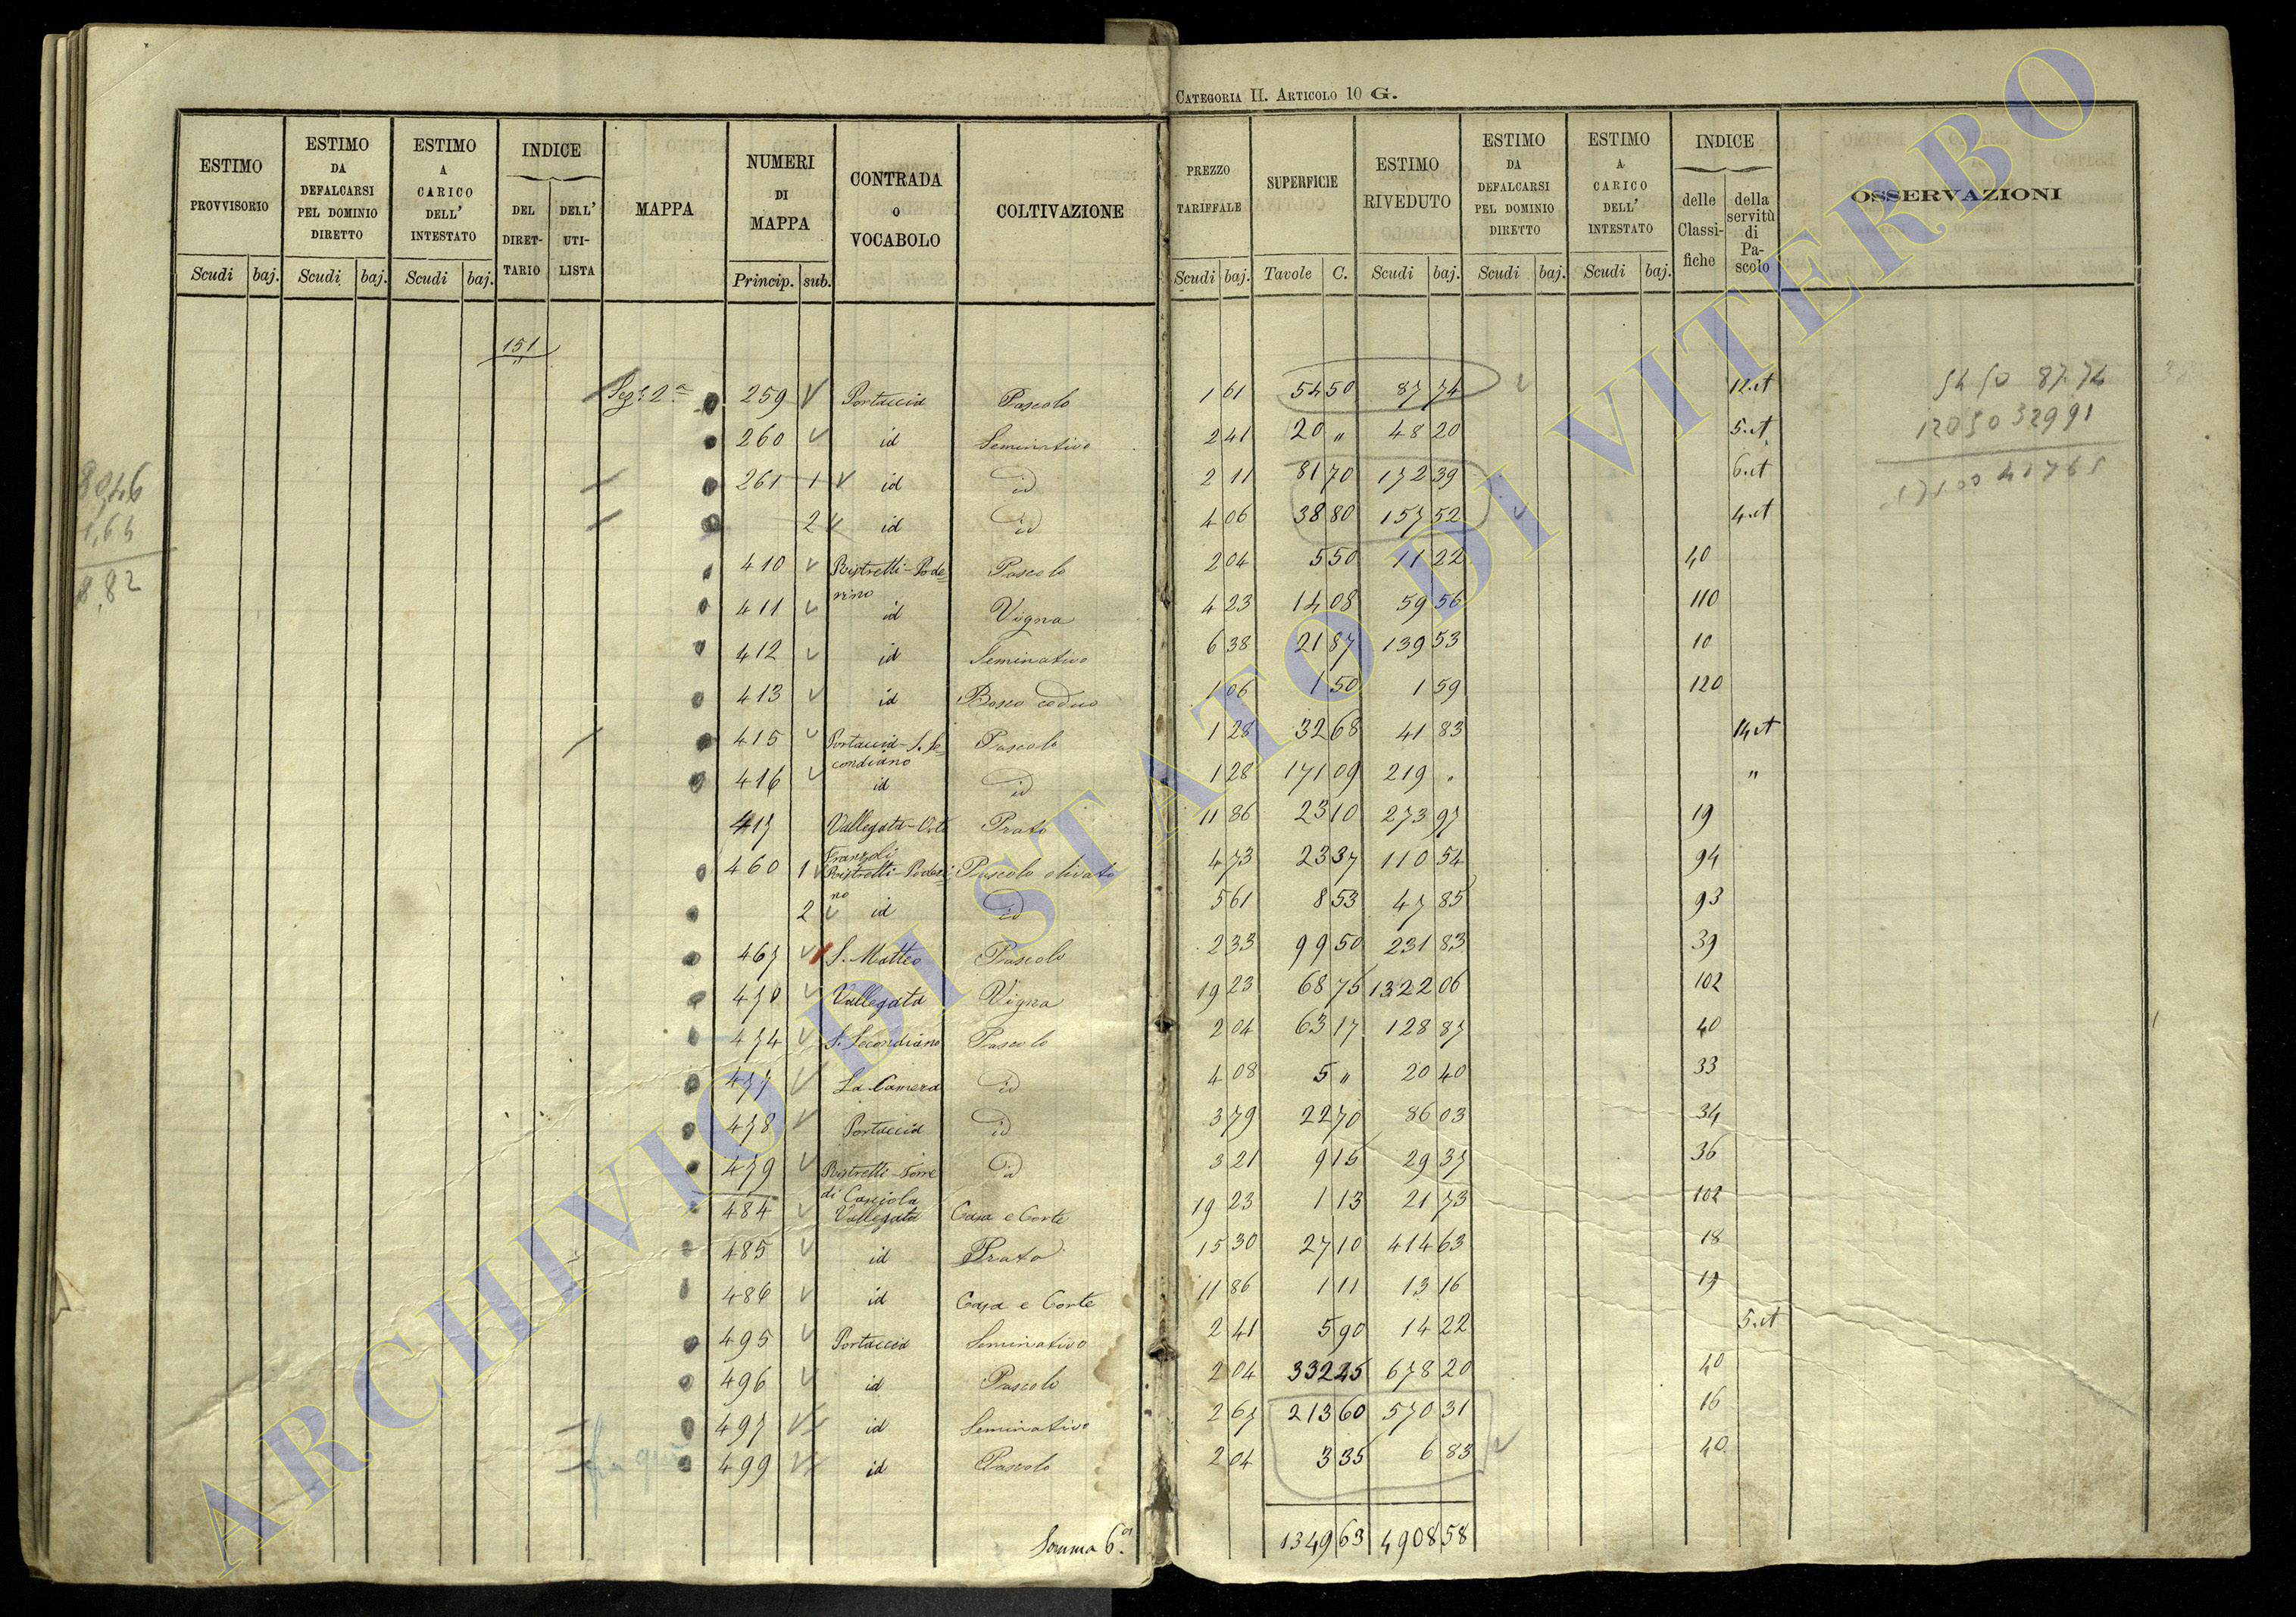 CATEGORIA II. ARTICOLO 10 G.
ESTIMO PROVVISORIO Scudi baj. | ESTIMO DA DEFALCARSI PEL DOMINIO DIRETTO Scudi baj. | ESTIMO A CARICO DELL' INTESTATO Scudi baj. | INDICE DEL DIRET-TARIO DELL' UTI-LISTA | MAPPA | NUMERI DI MAPPA Princip. sub. | CONTRADA O VOCABOLO | COLTIVAZIONE | PREZZO TARIFFALE Scudi baj. | SUPERFICIE Tavole C. | ESTIMO RIVEDUTO Scudi baj. | ESTIMO DA DEFALCARSI PEL DOMINIO DIRETTO Scudi baj. | ESTIMO A CARICO DELL' INTESTATO Scudi baj. | INDICE delle Classi-fiche della servitù di Pa-scolo | OSSERVAZIONI
151
Segt 2ª 259 Portaccia Pascolo 1 61 54 50 87 74 12.ct
260 id Seminativo 2 41 20 " 48 20 5.ct
261 1 id id 2 11 81 70 172 39 6.ct
2 id id 4 06 38 80 157 52 4.ct
410 Ristretti-Pode= Pascolo 2 04 5 50 11 22 40
rino
411 id Vigna 4 23 14 08 59 56 110
412 id Seminativo 6 38 21 87 139 53 10
413 id Bosco ceduo 1 06 1 50 1 59 120
415 Portaccia-S. Se= Pascolo 1 28 32 68 41 83 14.ct
condiano
416 id id 1 28 171 09 219 . "
417 Vallegata-Orto Prato 11 86 23 10 273 97 19
Franzoli
460 1 Ristretti-Poderi= Pascolo olivato 4 73 23 37 110 54 94
no
2 id id 5 61 8 53 47 85 93
467 S. Matteo Pascolo 2 33 99 50 231 83 39
470 Vallegata Vigna 19 23 68 75 1322 06 102
474 S. Secondiano Pascolo 2 04 63 17 128 87 40
477 La Camera id 4 08 5 " 20 40 33
478 Portaccia id 3 79 22 70 86 03 34
479 Ristretti-Torre id 3 21 9 15 29 37 36
di Casciola
484 Vallegata Casa e Corte 19 23 1 13 21 73 102
485 id Prato 15 30 27 10 414 63 18
486 id Casa e Corte 11 86 1 11 13 16 19
495 Portaccia Seminativo 2 41 5 90 14 22 5.ct
496 id Pascolo 2 04 332 45 678 20 40
497 id Seminativo 2 67 213 60 570 31 16
499 id Pascolo 2 04 3 35 6 83 40
Somma 6ª 1349 63 4908 58
54 50 87.74
120 50 329 91
8,82
ARCHIVIO DI STATO DI VITERBO